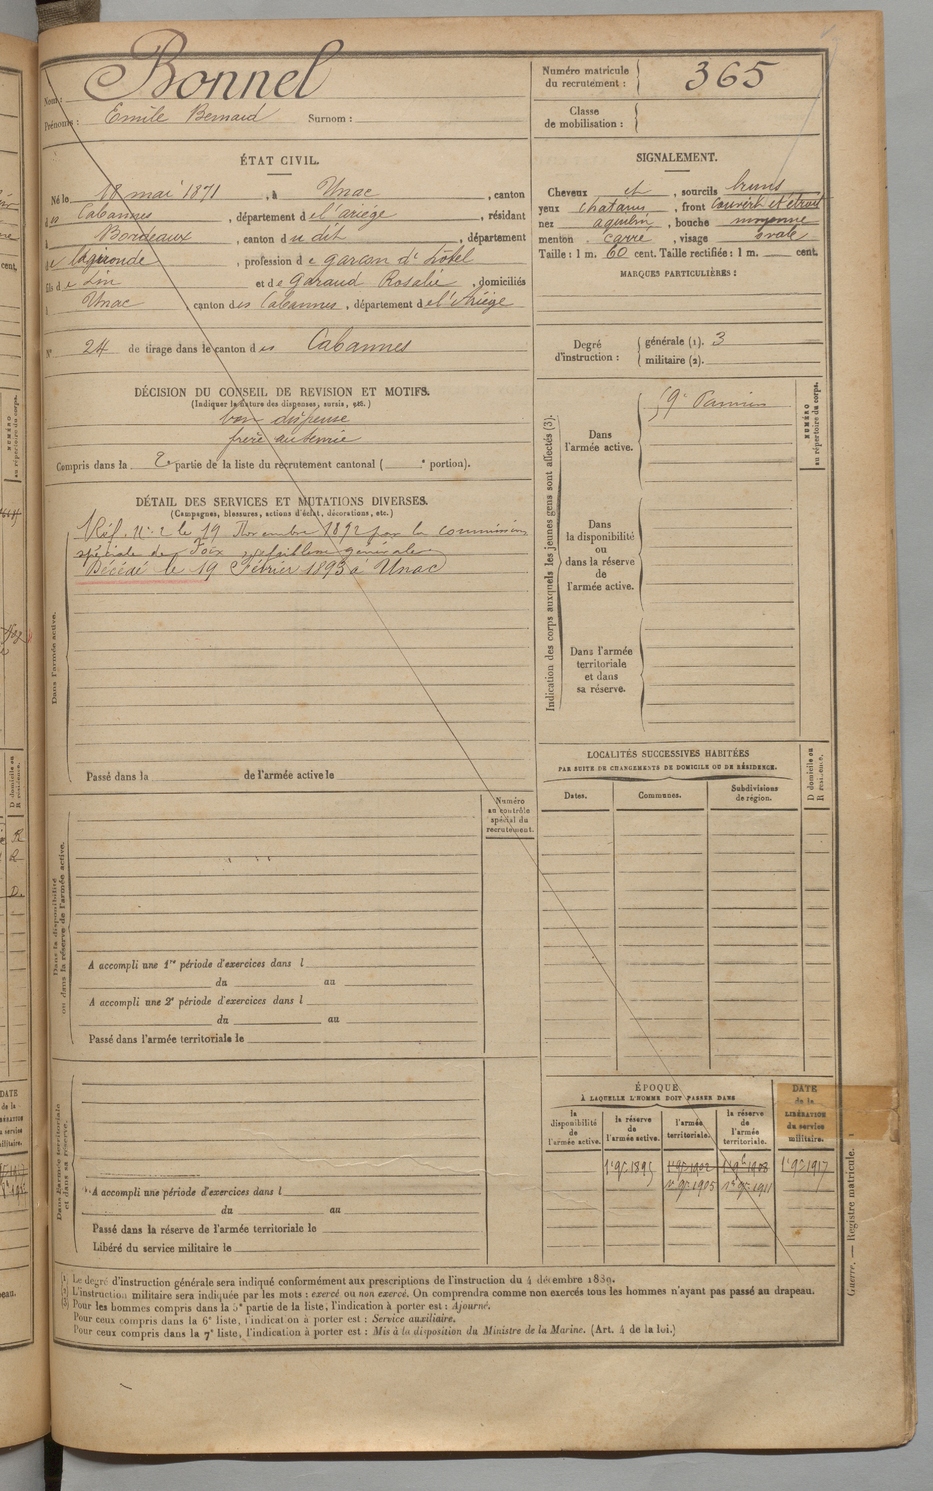 Nom : Bonnel
Prénoms : Emile Bernard Surnom :
Numéro matricule du recrutement : 365
Classe de mobilisation :
ÉTAT CIVIL.
Né le 18 mai 1871, à Unac, canton
des Cabannes, département de l'ariége, résidant
à Bordeaux, canton du dit, département
de la gironde, profession de garcon d'hôtel
fils de Lin et de Garaud Rosalie, domiciliés
à Unac, canton des Cabannes, département de l'Ariège
N° 24 de tirage dans le canton des Cabannes
SIGNALEMENT.
Cheveux et, sourcils bruns
yeux chatains, front couvert et étroit
nez aquilin, bouche moyenne
menton carré, visage ovale
Taille : 1 m. 60 cent. Taille rectifiée : 1 m. cent.
MARQUES PARTICULIÈRES :
Degré d'instruction : générale (1). 3
militaire (2).
DÉCISION DU CONSEIL DE REVISION ET MOTIFS.
(Indiquer la nature des dispenses, sursis, etc.)
bon dispense
frère
Compris dans la 2e partie de la liste du recrutement cantonal ( e portion).
DÉTAIL DES SERVICES ET MUTATIONS DIVERSES.
(Campagnes, blessures, actions d'éclat, décorations, etc.)
Réf. n° 2 le 19 Novembre 1892 par la commission
spéciale de Foix pr faiblesse générale
Décédé le 19 Février 1893 à Unac
Dans l'armée active.
Passé dans la de l'armée active le
Indication des corps auxquels les jeunes gens sont affectés (3).
Dans l'armée active.
59e Pamiers
Dans la disponibilité ou dans la réserve de l'armée active.
Dans l'armée territoriale et dans sa réserve.
NUMÉRO au répertoire du corps.
LOCALITÉS SUCCESSIVES HABITÉES
PAR SUITE DE CHANGEMENTS DE DOMICILE OU DE RÉSIDENCE.
Dates. Communes. Subdivisions de région.
D domicile ou R résidence.
Numéro au contrôle spécial du recrutement.
Dans la disponibilité ou dans la réserve de l'armée active.
A accompli une 1re période d'exercices dans l
du au
A accompli une 2e période d'exercices dans l
du au
Passé dans l'armée territoriale le
Dans l'armée territoriale et dans sa réserve.
A accompli une période d'exercices dans l
du au
Passé dans la réserve de l'armée territoriale le
Libéré du service militaire le
ÉPOQUE
À LAQUELLE L'HOMME DOIT PASSER DANS
la disponibilité de l'armée active. la réserve de l'armée active. l'armée territoriale. la réserve de l'armée territoriale.
DATE de la LIBÉRATION du service militaire.
1er 9bre 1895 1er 9bre 1902 1er 9bre 1908 1er 9bre 1917
1er 9bre 1905 1er 9bre 1911
(1) Le degré d'instruction générale sera indiqué conformément aux prescriptions de l'instruction du 4 décembre 1889.
(2) L'instruction militaire sera indiquée par les mots : exercé ou non exercé. On comprendra comme non exercés tous les hommes n'ayant pas passé au drapeau.
(3) Pour les hommes compris dans la 5e partie de la liste, l'indication à porter est : Ajourné.
Pour ceux compris dans la 6e liste, l'indication à porter est : Service auxiliaire.
Pour ceux compris dans la 7e liste, l'indication à porter est : Mis à la disposition du Ministre de la Marine. (Art. 4 de la loi.)
Guerre. — Registre matricule.